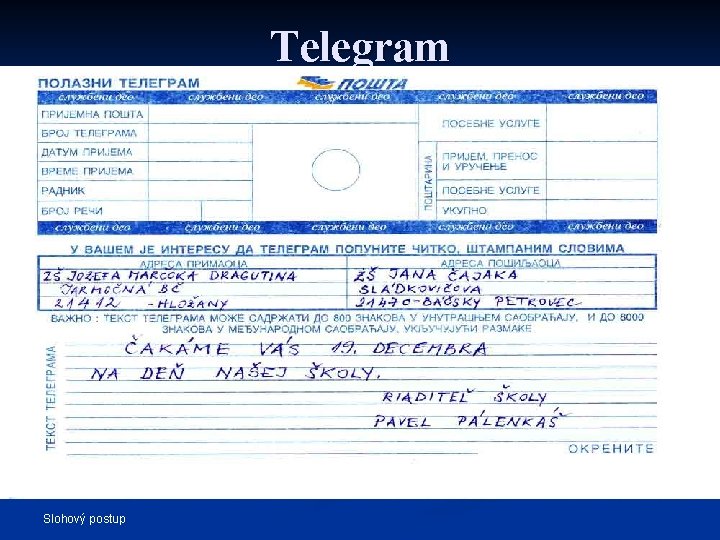 Telegram
ПОЛАЗНИ ТЕЛЕГРАМ ПОШТА
службени део службени део службени део службени део службени део
ПРИЈЕМНА ПОШТА
БРОЈ ТЕЛЕГРАМА
ДАТУМ ПРИЈЕМА
ВРЕМЕ ПРИЈЕМА
РАДНИК
БРОЈ РЕЧИ
ПОШТАРИНА
ПОСЕБНЕ УСЛУГЕ
ПРИЈЕМ, ПРЕНОС
И УРУЧЕЊЕ
ПОСЕБНЕ УСЛУГЕ
УКУПНО
службени део службени део службени део службени део службени део
У ВАШЕМ ЈЕ ИНТЕРЕСУ ДА ТЕЛЕГРАМ ПОПУНИТЕ ЧИТКО, ШТАМПАНИМ СЛОВИМА
АДРЕСА ПРИМАОЦА
ZŠ JOŽEFA MARČOKA DRAGUTINA
JARMOČNÁ BČ
21412 - HLOŽANY
АДРЕСА ПОШИЉАОЦА
ZŠ JANA ČAJAKA
SLÁDKOVIČOVA
21470-BÁČSKY PETROVEC
ВАЖНО : ТЕКСТ ТЕЛЕГРАМА МОЖЕ САДРЖАТИ ДО 800 ЗНАКОВА У УНУТРАШЊЕМ САОБРАЋАЈУ, И ДО 8000
ЗНАКОВА У МЕЂУНАРОДНОМ САОБРАЋАЈУ, УКЉУЧУЈУЋИ РАЗМАКЕ.
ТЕКСТ ТЕЛЕГРАМА
ČAKÁME VÁS 19. DECEMBRA
NA DEŇ NAŠEJ ŠKOLY.
RIADITEĽ ŠKOLY
PAVEL PÁLENKÁŠ
ОКРЕНИТЕ
Slohový postup